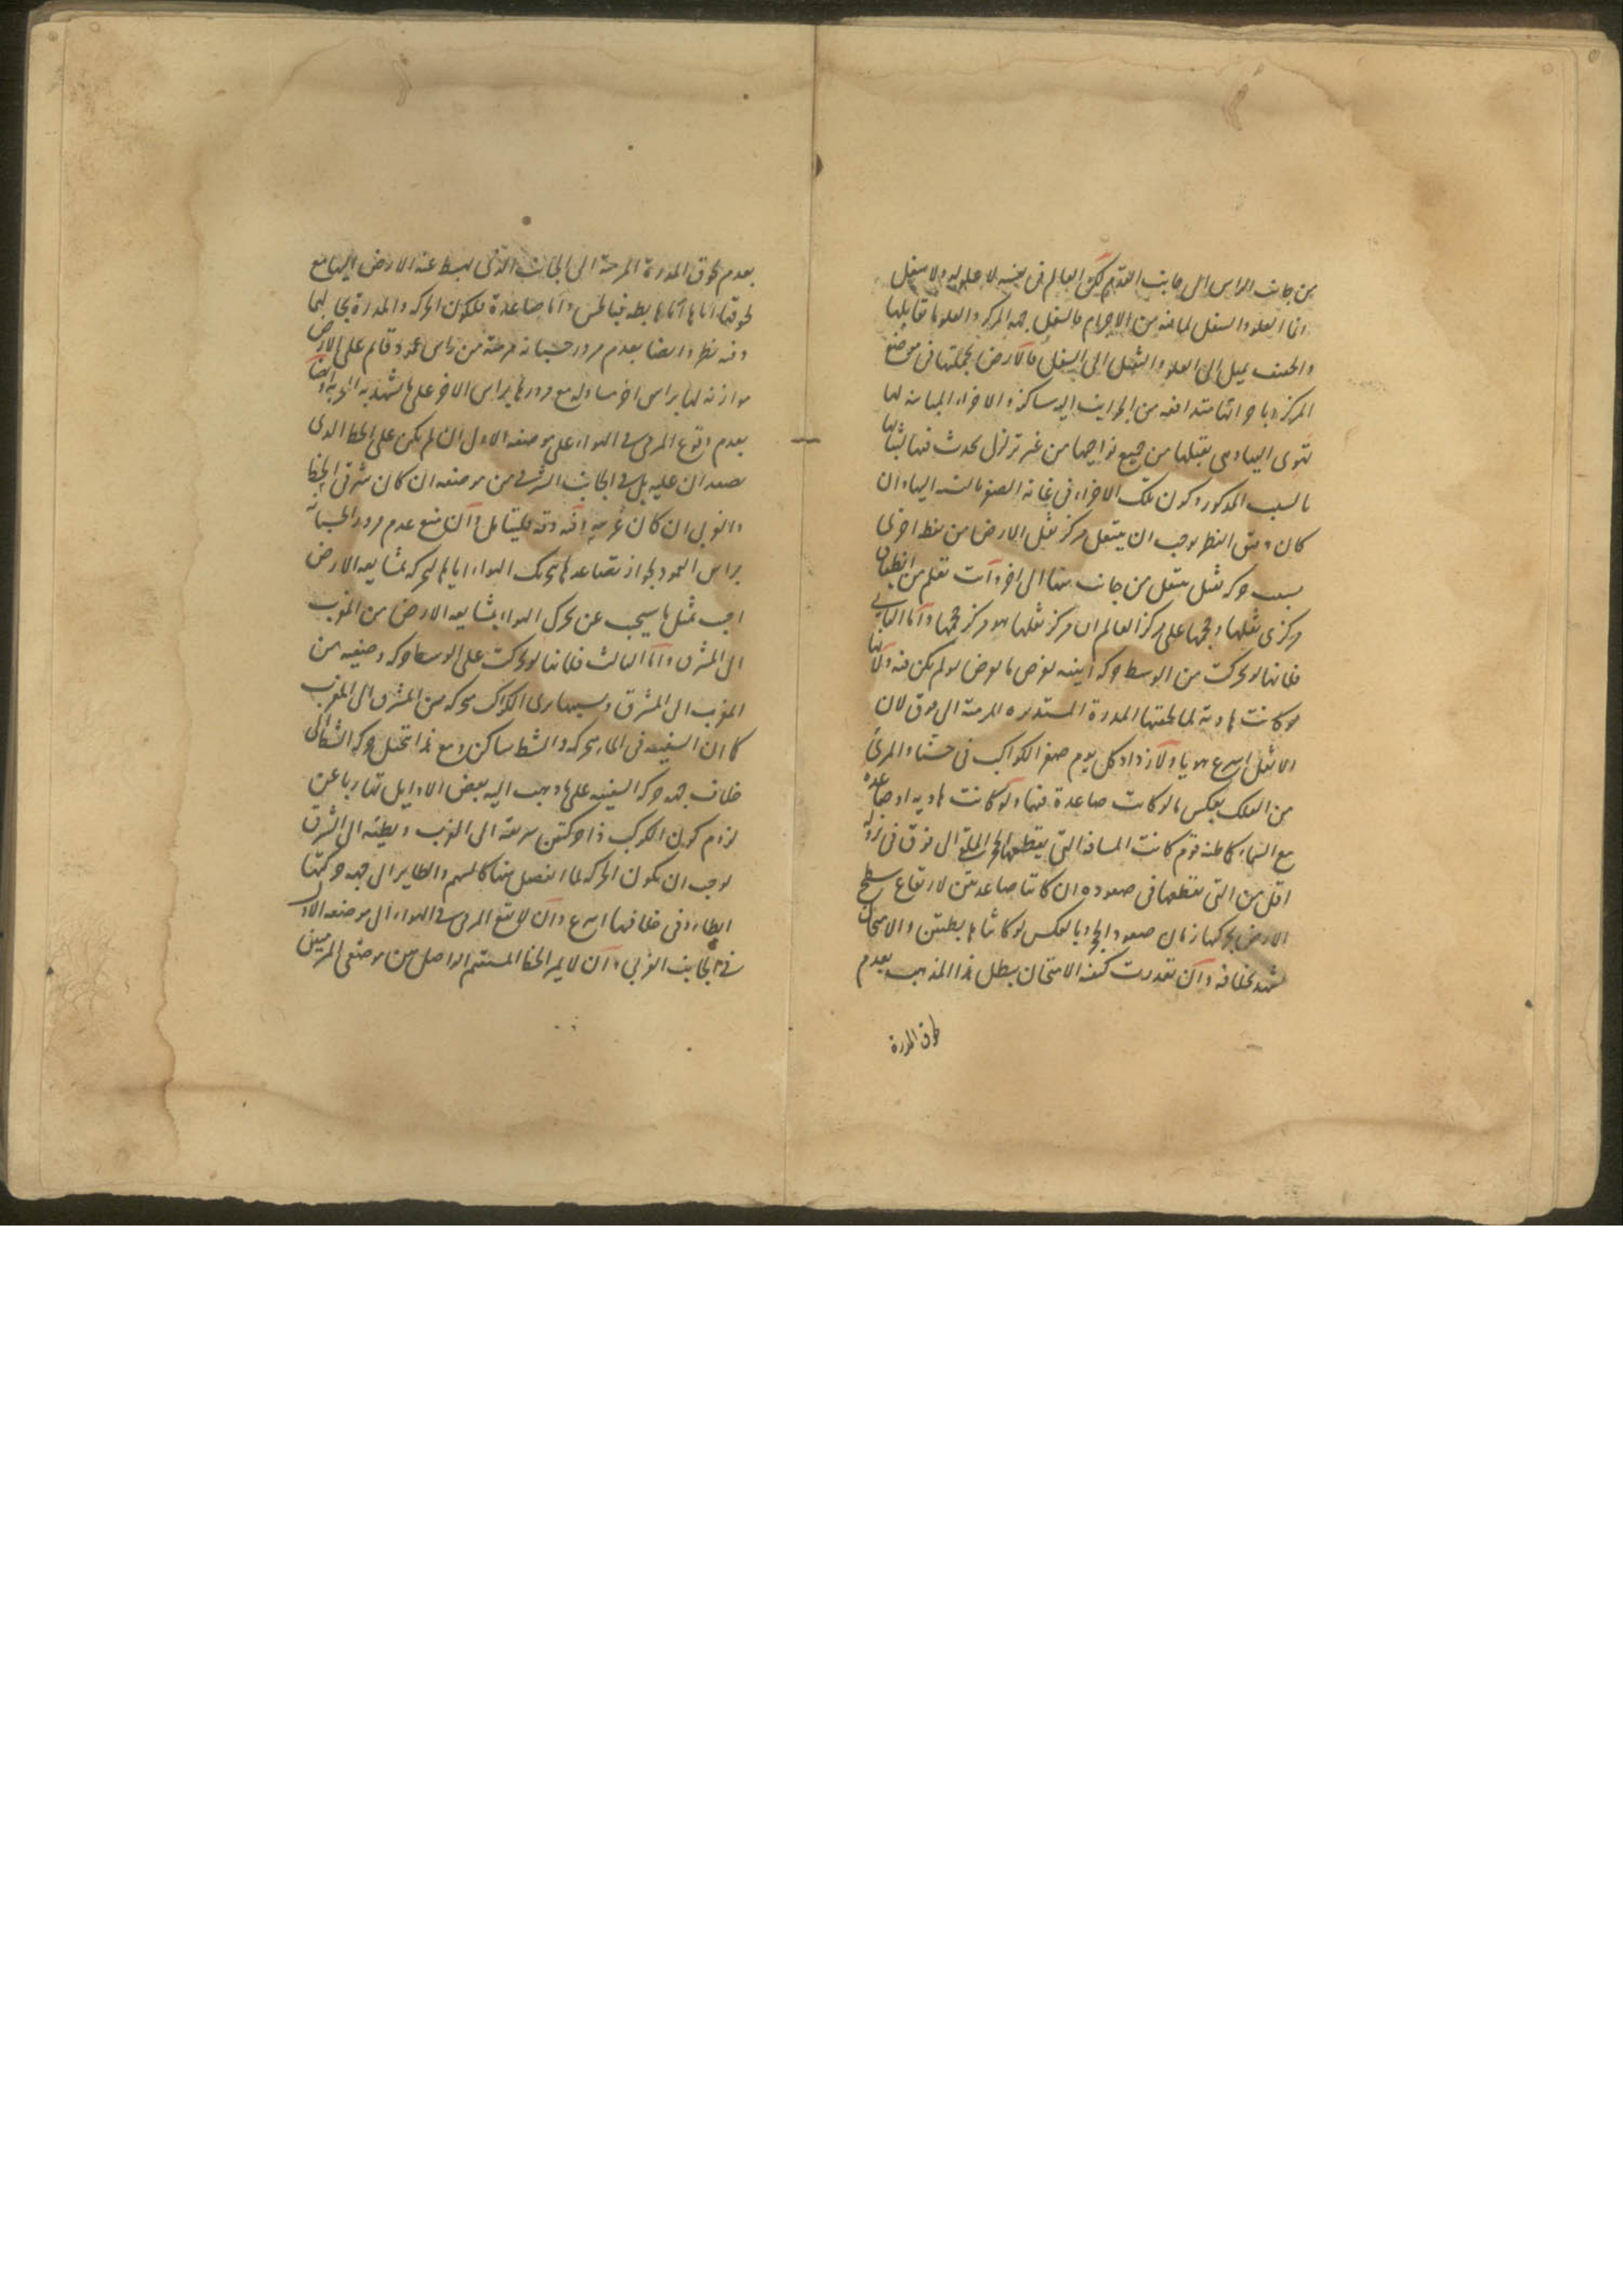 من جانب الراس الى جانب القدم لكن العالم في نفسه لا علو له ولا سفل
انما العلو والسفل لما فيه من الاجرام فالسفل جهة المركز والعلو ما قابلها
والخفيف يميل الى العلو والثقيل الى السفل فالارض بجملتها في موضع
المركز وباجزائها متدافعة من الجوانب اليه ساكنة والاجزاء المباينة لها
تهوى اليها وهي بثقلها من جميع نواحيها من غير تزلزل يحدث فيها لثباتها
بالسبب المذكور وكون تلك الاجزاء في غاية الصغر بالنسبة اليها وان
كان دقيق النظر يوجب ان ينتقل مركز ثقل الارض من نقطة اخرى
بسبب حركة ثقيل ينتقل من جانب منها الى اخر وانت تعلم من انطباق
مركزي ثقلها وحجمها على مركز العالم ان مركز ثقلها هو مركز حجمها واما الثاني
فلانها لو تحركت من الوسط حركة اينية لعرض ما يعرض لو لم يكن فيه ولانها
لو كانت هاوية لما لحقتها المدرة المستديرة المرمية الى فوق لان
الاثقل اسرع هويا ولازداد كل يوم صغر الكواكب في حسنا والمرئي
من الفلك بعكس ما لو كانت صاعدة فيهما ولو كانت هاوية او صاعدة
مع السماء كما ظنه قوم كانت المسافة التي يقطعها الحجر الملقى الى فوق في نزوله
اقل من التي يقطعها في صعوده ان كانتا صاعدتين لارتفاع سطح
الارض بحركتها زمان صعود الحجر وبالعكس لو كانتا هابطتين والامتحان
شهد بخلافه وان تعذرت كيفية الامتحان يبطل هذا المذهب بعدم
لحوق المدرة
بعدم لحوق المدرة المرمية الى الجانب الذي يهبط عنه الارض اليها مع
لحوقها اياها اما هابطة فبالحس واما صاعدة فلكون الحركة والمدرة بحالهما
وفيه نظر وايضا بعدم مرور حسبانة مرمية من راس عمود قائم على الارض
موازية لها براس اخر مساو له مع مرورها براس الاخر على ما شهد به التجربة وايضا
بعدم وقوع المرمي في الهواء على موضعه الاول ان لم يكن على الخط الذي
يصعدان عليه بل في الجانب الشرقي من موضعه ان كان شرقي الخط
والغربي ان كان غربيه وفيه دقة فليتامل وان منع عدم مرور الحسبانة
براس العمود لجواز تصاعدها بتحريك الهواء اياها لتحركه بمشايعة الارض
اجيب بمثل ما سيجيب عن تحرك الهواء بمشايعة الارض من المغرب
الى المشرق واما الثالث فلانها لو تحركت على الوسط حركة وضعية من
المغرب الى المشرق وبسببها يرى الكواكب متحركة من المشرق الى المغرب
كما ان السفينة في الماء متحركة والشط ساكن ومع هذا تتخيل حركة الشط الى
خلاف جهة حركة السفينة على ما ذهب اليه بعض الاوايل تهاربا عن
لزوم كون الكوكب ذا حركتين سريعة الى المغرب وبطيئة الى المشرق
لوجب ان يكون الحركة لما انفصل عنها كالسهم والطاير الى جهة حركتها
ابطاء وفي خلافها اسرع وان لا يقع المرمي في الهواء الى موضعه الاول
في الجانب الغربي وان لا يمر الخط المستقيم الواصل بين موضعي المرميين